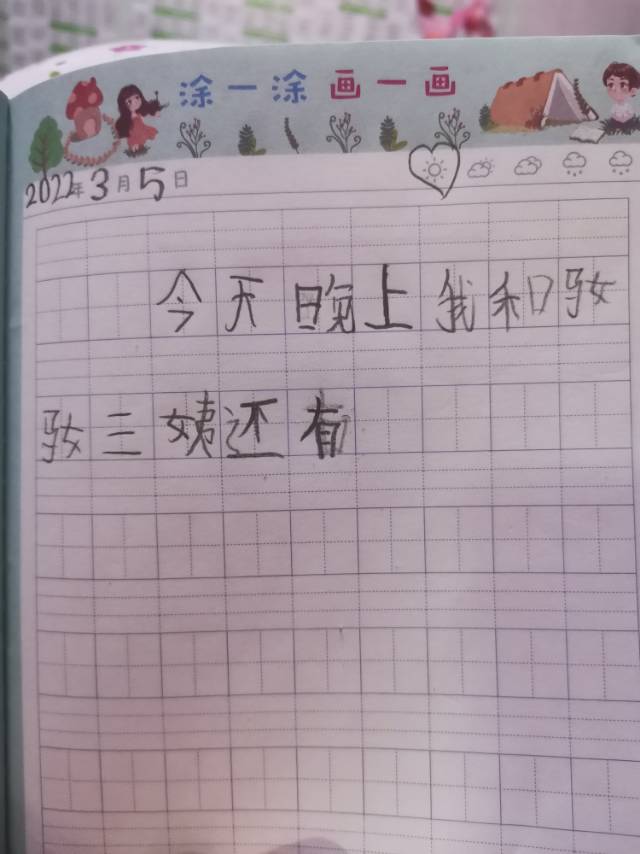 涂一涂画一画
2022年3月5日
今天晚上我和妈
妈三姨还有